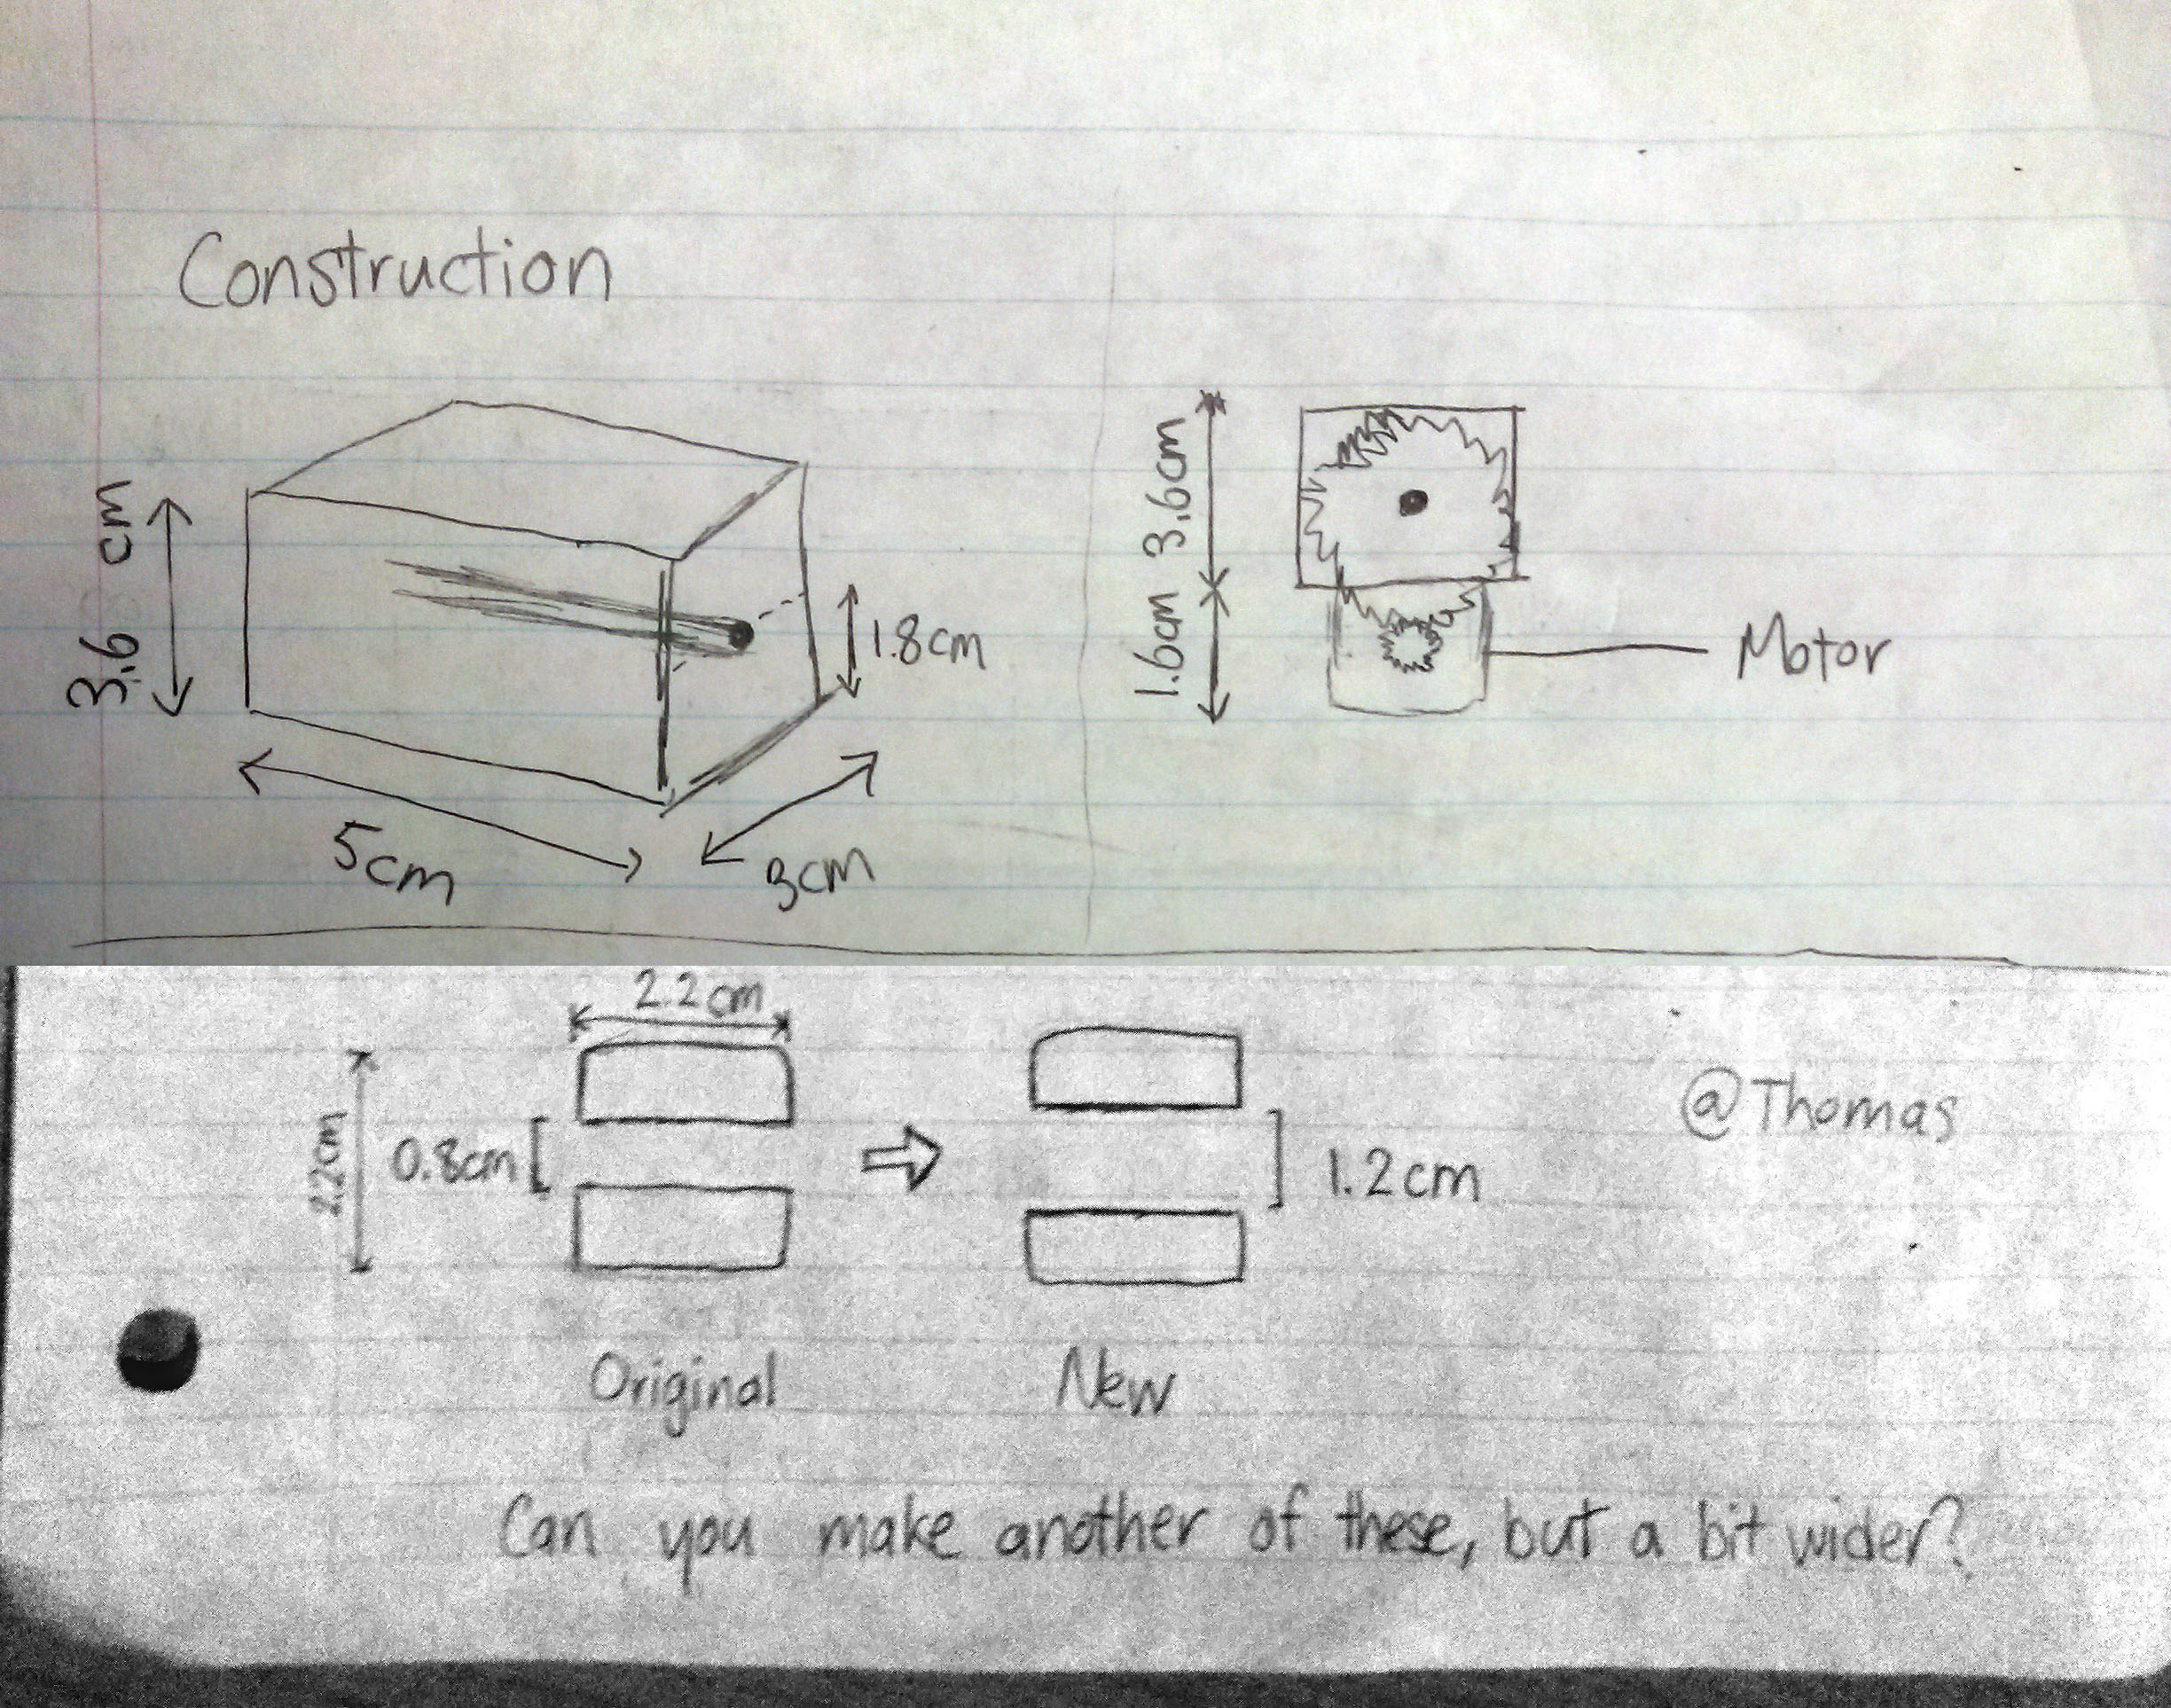 Construction
3.6 cm
5cm
3cm
1.8cm
3.6cm
1.6cm
Motor
2.2cm
2.2cm
0.8cm
1.2cm
@Thomas
Original
New
Can you make another of these, but a bit wider?